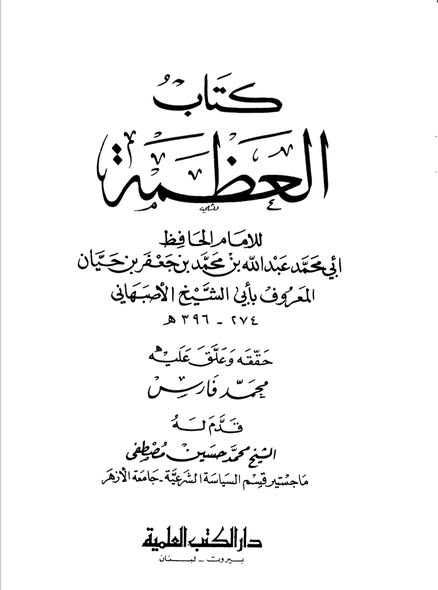 كتاب
العظمة
للامام الحافظ
أبي محمد عبد الله بن محمد بن جعفر بن حيان
المعروف بأبي الشيخ الأصبهاني
٢٧٤ - ٣٩٦ هـ
حققه وعلق عليه
محمد فارس
قدم له
الشيخ محمد حسين مصطفى
ماجستير قسم السياسة الشرعية - جامعة الأزهر
دار الكتب العلمية
بيروت - لبنان